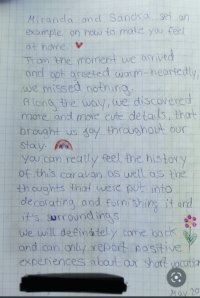 Miranda and Sandra set an
example on how to make you feel
at home.
From the moment we arrived
and got greeted warm-heartedly,
we missed nothing.
Along the way, we discovered
more and more cute details, that
brought us joy throughout our
stay.
You can really feel the history
of this caravan as well as the
thoughts that were put into
decorating and furnishing it and
it's surroundings.
We will definetely come back
and can only report positive
experiences about our short vacation
May 20